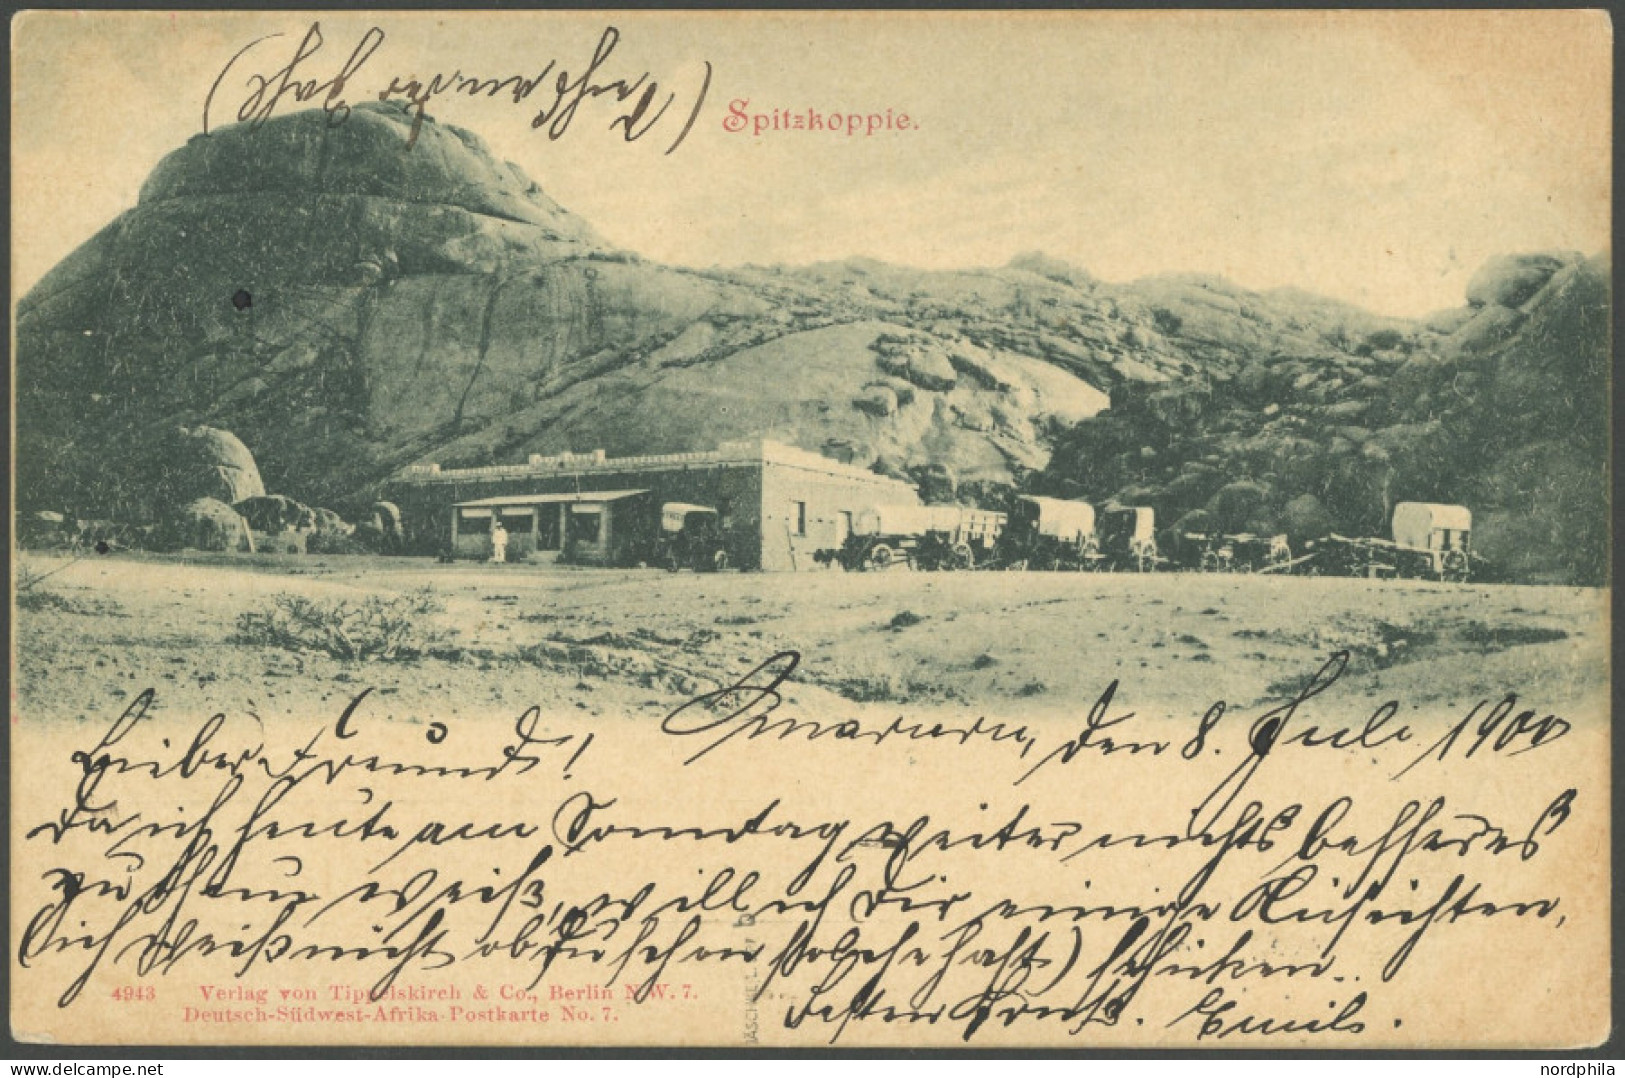 Spitzkoppie.
Omaruru, den 8. Juli 1900
Lieber Freund!
Da ich heute am Sonntag weiter nichts besseres
zu thun weiß, will ich Dir einige Ansichten,
(ich weiß nicht ob Du schon solche hast) schicken.
Besten Gruß. Emil.
4943 Verlag von Tippelskirch & Co., Berlin N.W. 7.
Deutsch-Südwest-Afrika-Postkarte No. 7.
nordphila